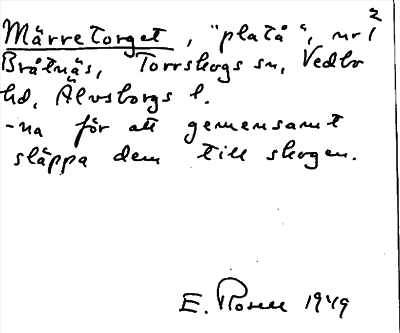 Märretorget, "platå", nr 1 2
Bråtnäs, Torrskogs sn, Vedbo
hd, Älvsborgs l.
-na för att gemensamt
släppa dem till skogen.
E. Rosell 1949